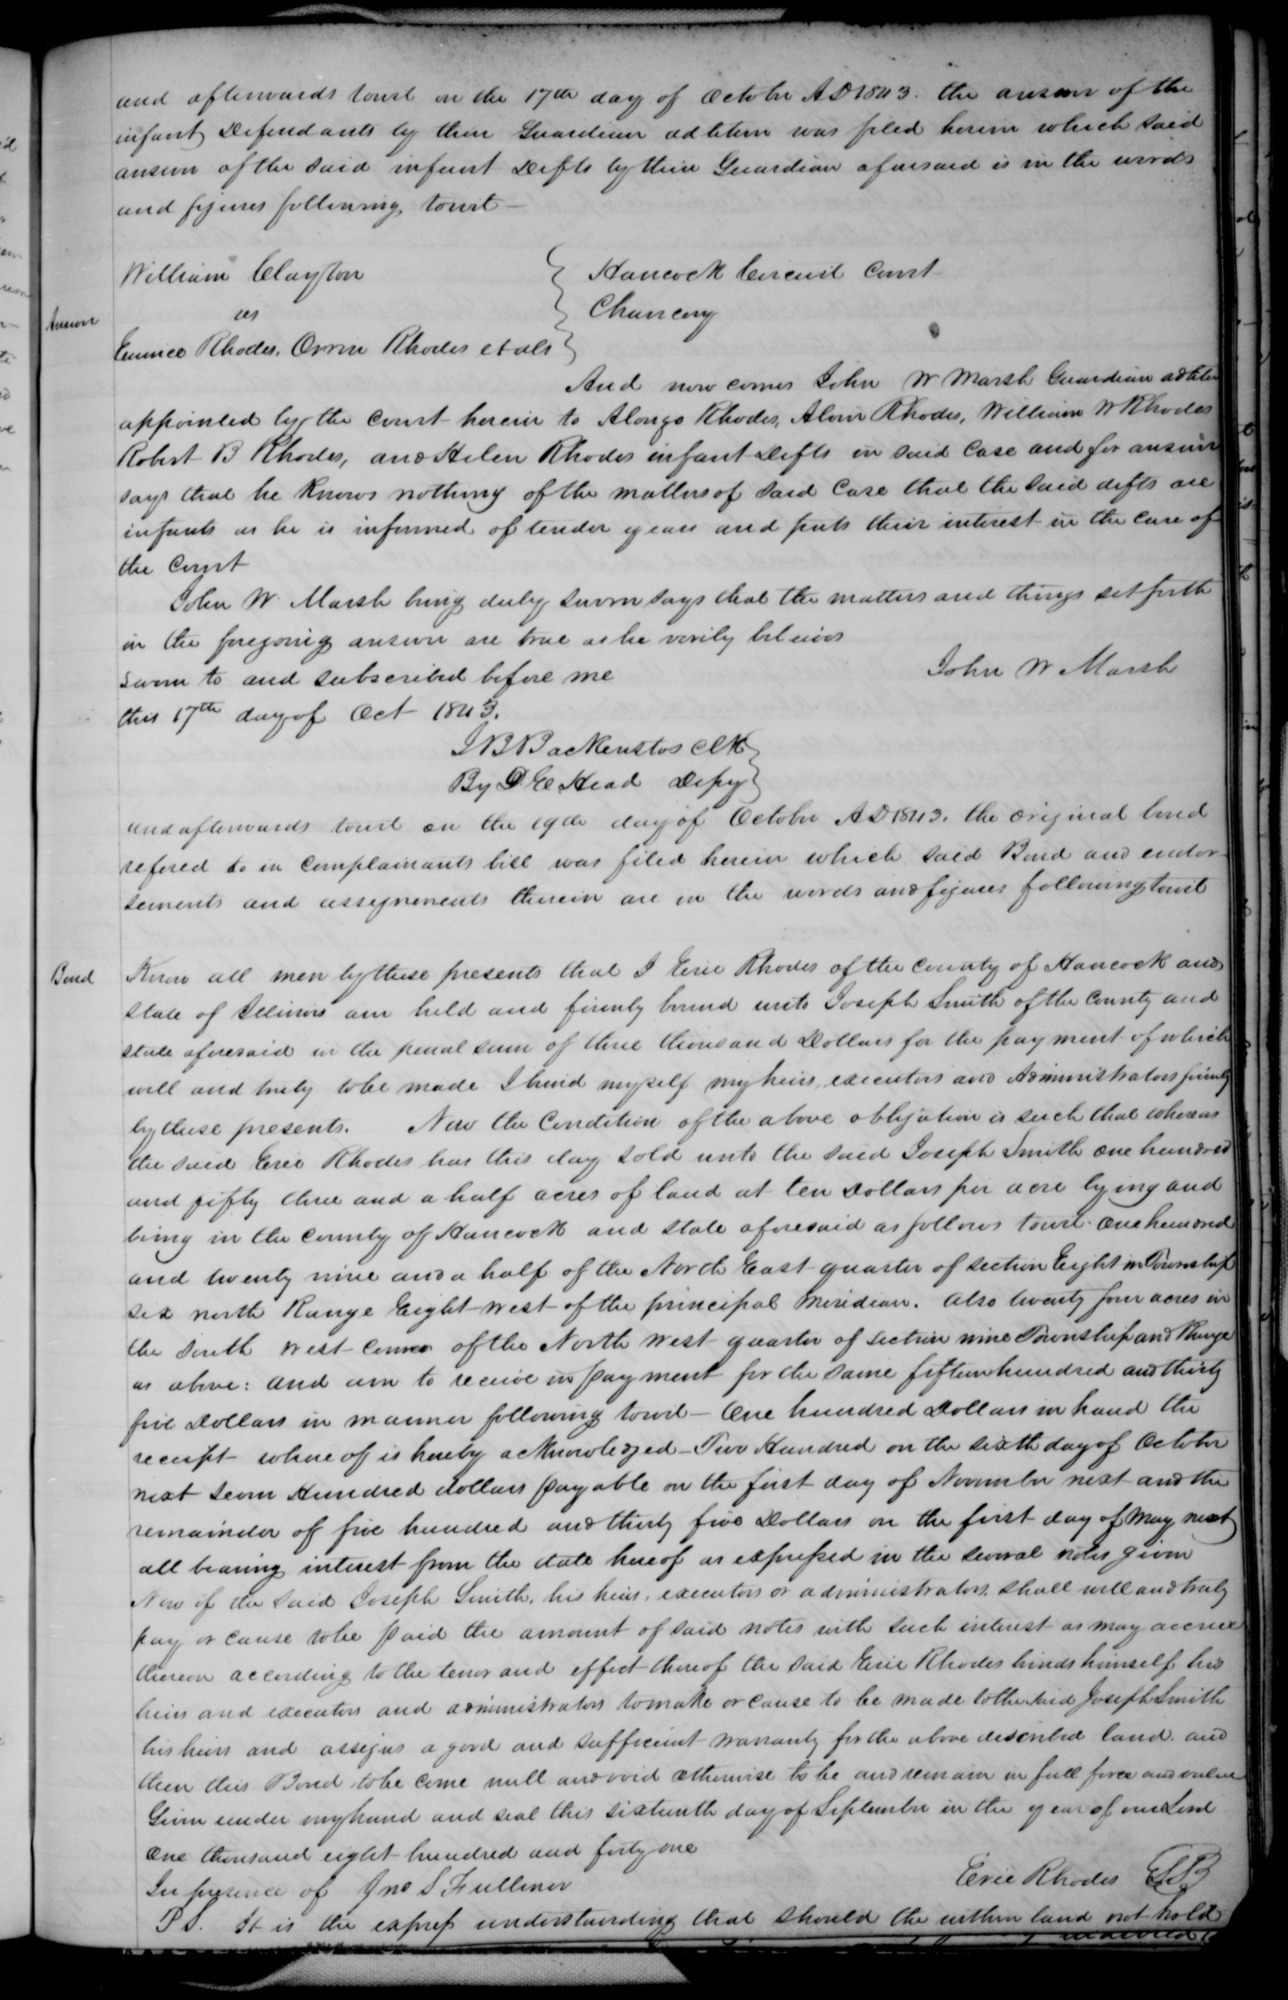 and afterwards towit on the 17th day of October AD 1843. the answer of the
infant Defendants by their Guardian adlitem was filed herein which said
answer of the said infant Defts by their Guardian aforesaid is in the words
and figures following towit —
William Clayton } Hancock Circuit Court
vs } Chancery
Answer
Eunice Rhodes, Orrin Rhodes et als }
And now comes John W Marsh Guardian adlitem
appointed by the Court herein to Alonzo Rhodes, Alvin Rhodes, William W Rhodes
Robert B Rhodes, and Helen Rhodes infant Defts in said Case and for answer
says that he knows nothing of the matters of said Case that the said defts are
infants as he is informed of tender years and puts their interest in the care of
the Court
John W. Marsh being duly sworn says that the matters and things set forth
in the foregoing answer are true as he verily believes
Sworn to and subscribed before me John W Marsh
this 17th day of Oct 1843.
J B Backenstos Clk }
By D E Head Depy }
and afterwards towit on the 19th day of October AD 1843. the original bond
refered to in complainants bill was filed herein which said Bond and endor-
sements and assignments therein are in the words and figures following towit
Bond Know all men by these presents that I Erie Rhodes of the County of Hancock and
State of Illinois am held and firmly bound unto Joseph Smith of the County and
state aforesaid in the penal sum of three thousand Dollars for the payment of which
well and truly to be made I bind myself my heirs, executors and Administrators firmly
by these presents. Now the Condition of the above obligation is such that whereas
the said Erie Rhodes has this day sold unto the said Joseph Smith one hundred
and fifty three and a half acres of land at ten Dollars per acre lying and
being in the County of Hancock and state aforesaid as follows towit. One hundred
and twenty nine and a half of the North East quarter of section Eight in Township
six north Range Eight west of the principal Meridian. Also twenty four acres in
the South West corner of the North West quarter of section nine Township and Range
as above: and am to receive in payment for the same fifteen hundred and thirty
five Dollars in manner following towit — One hundred Dollars in hand the
receipt where of is hereby acknowledged — Two Hundred on the sixth day of October
next Seven Hundred dollars payable on the first day of November next and the
remainder of five hundred and thirty five Dollars on the first day of May next
all bearing interest from the date hereof as expressed in the several notes given
Now if the said Joseph Smith, his heirs, executors or administrators, shall well and truly
pay or cause to be paid the amount of said notes with such interest as may accrue
thereon according to the tenor and effect thereof the said Erie Rhodes binds himself his
heirs and executors and administrators to make or cause to be made to the said Joseph Smith
his heirs and assigns a good and sufficient warranty for the above described land. and
then this Bond to be come null and void otherwise to be and remain in full force and value
Given under my hand and seal this sixteenth day of September in the year of our Lord
One thousand eight hundred and forty one
In presence of Jno S Fullmer Erie Rhodes
P S. It is the express understanding that should the within land not hold